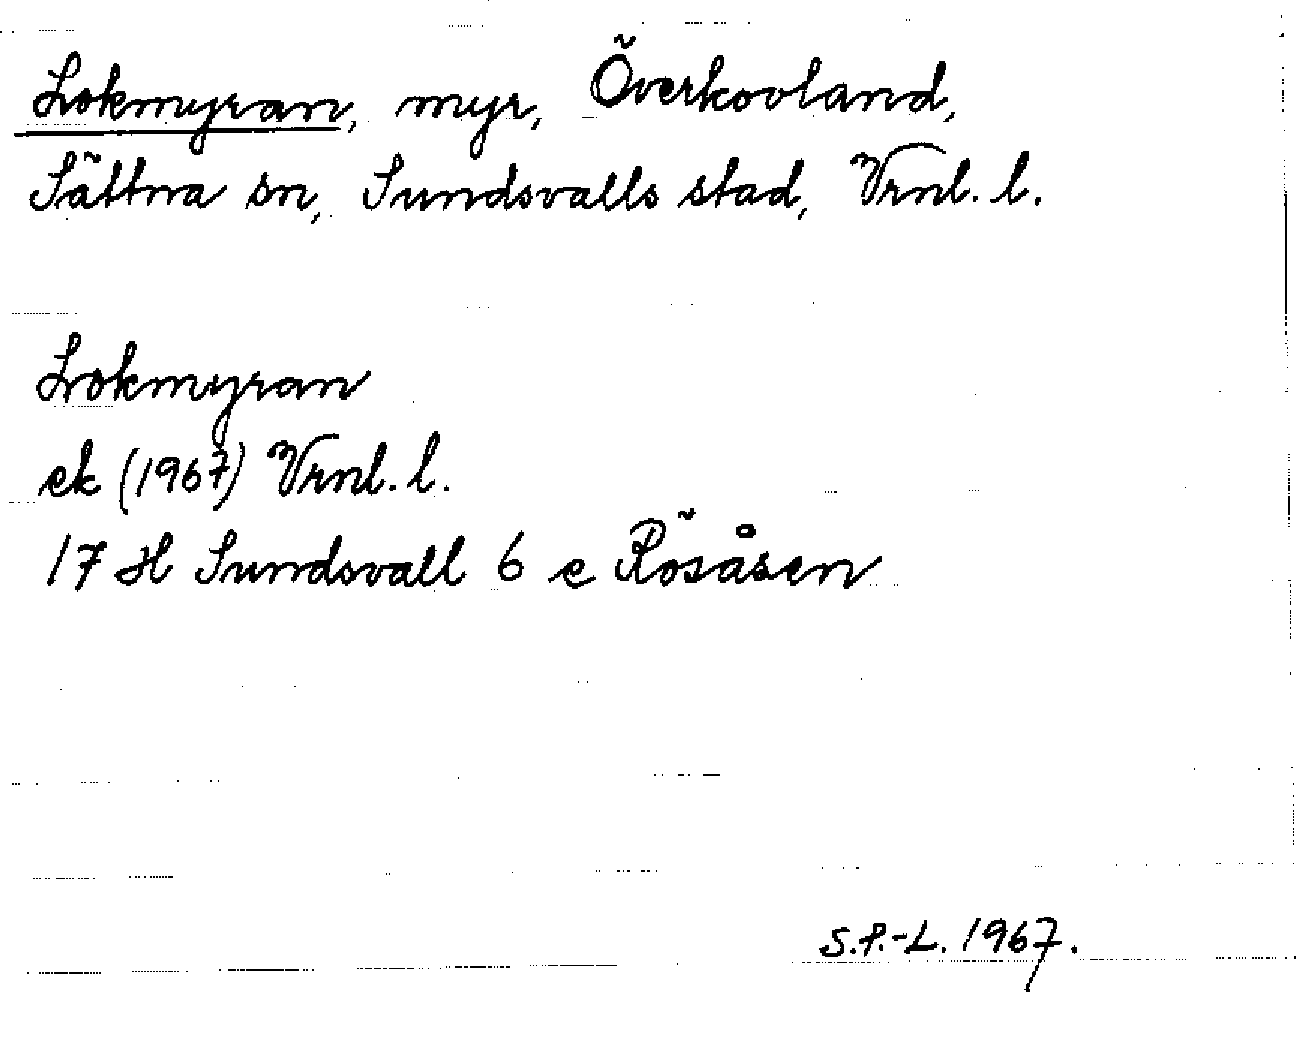 Lokmyran, myr, Överkovland,
Sättna sn, Sundsvalls stad, Vrnl. l.
Lokmyran
ek (1967) Vrnl. l.
17 H Sundsvall 6 e Rösåsen
S.P.-L. 1967.